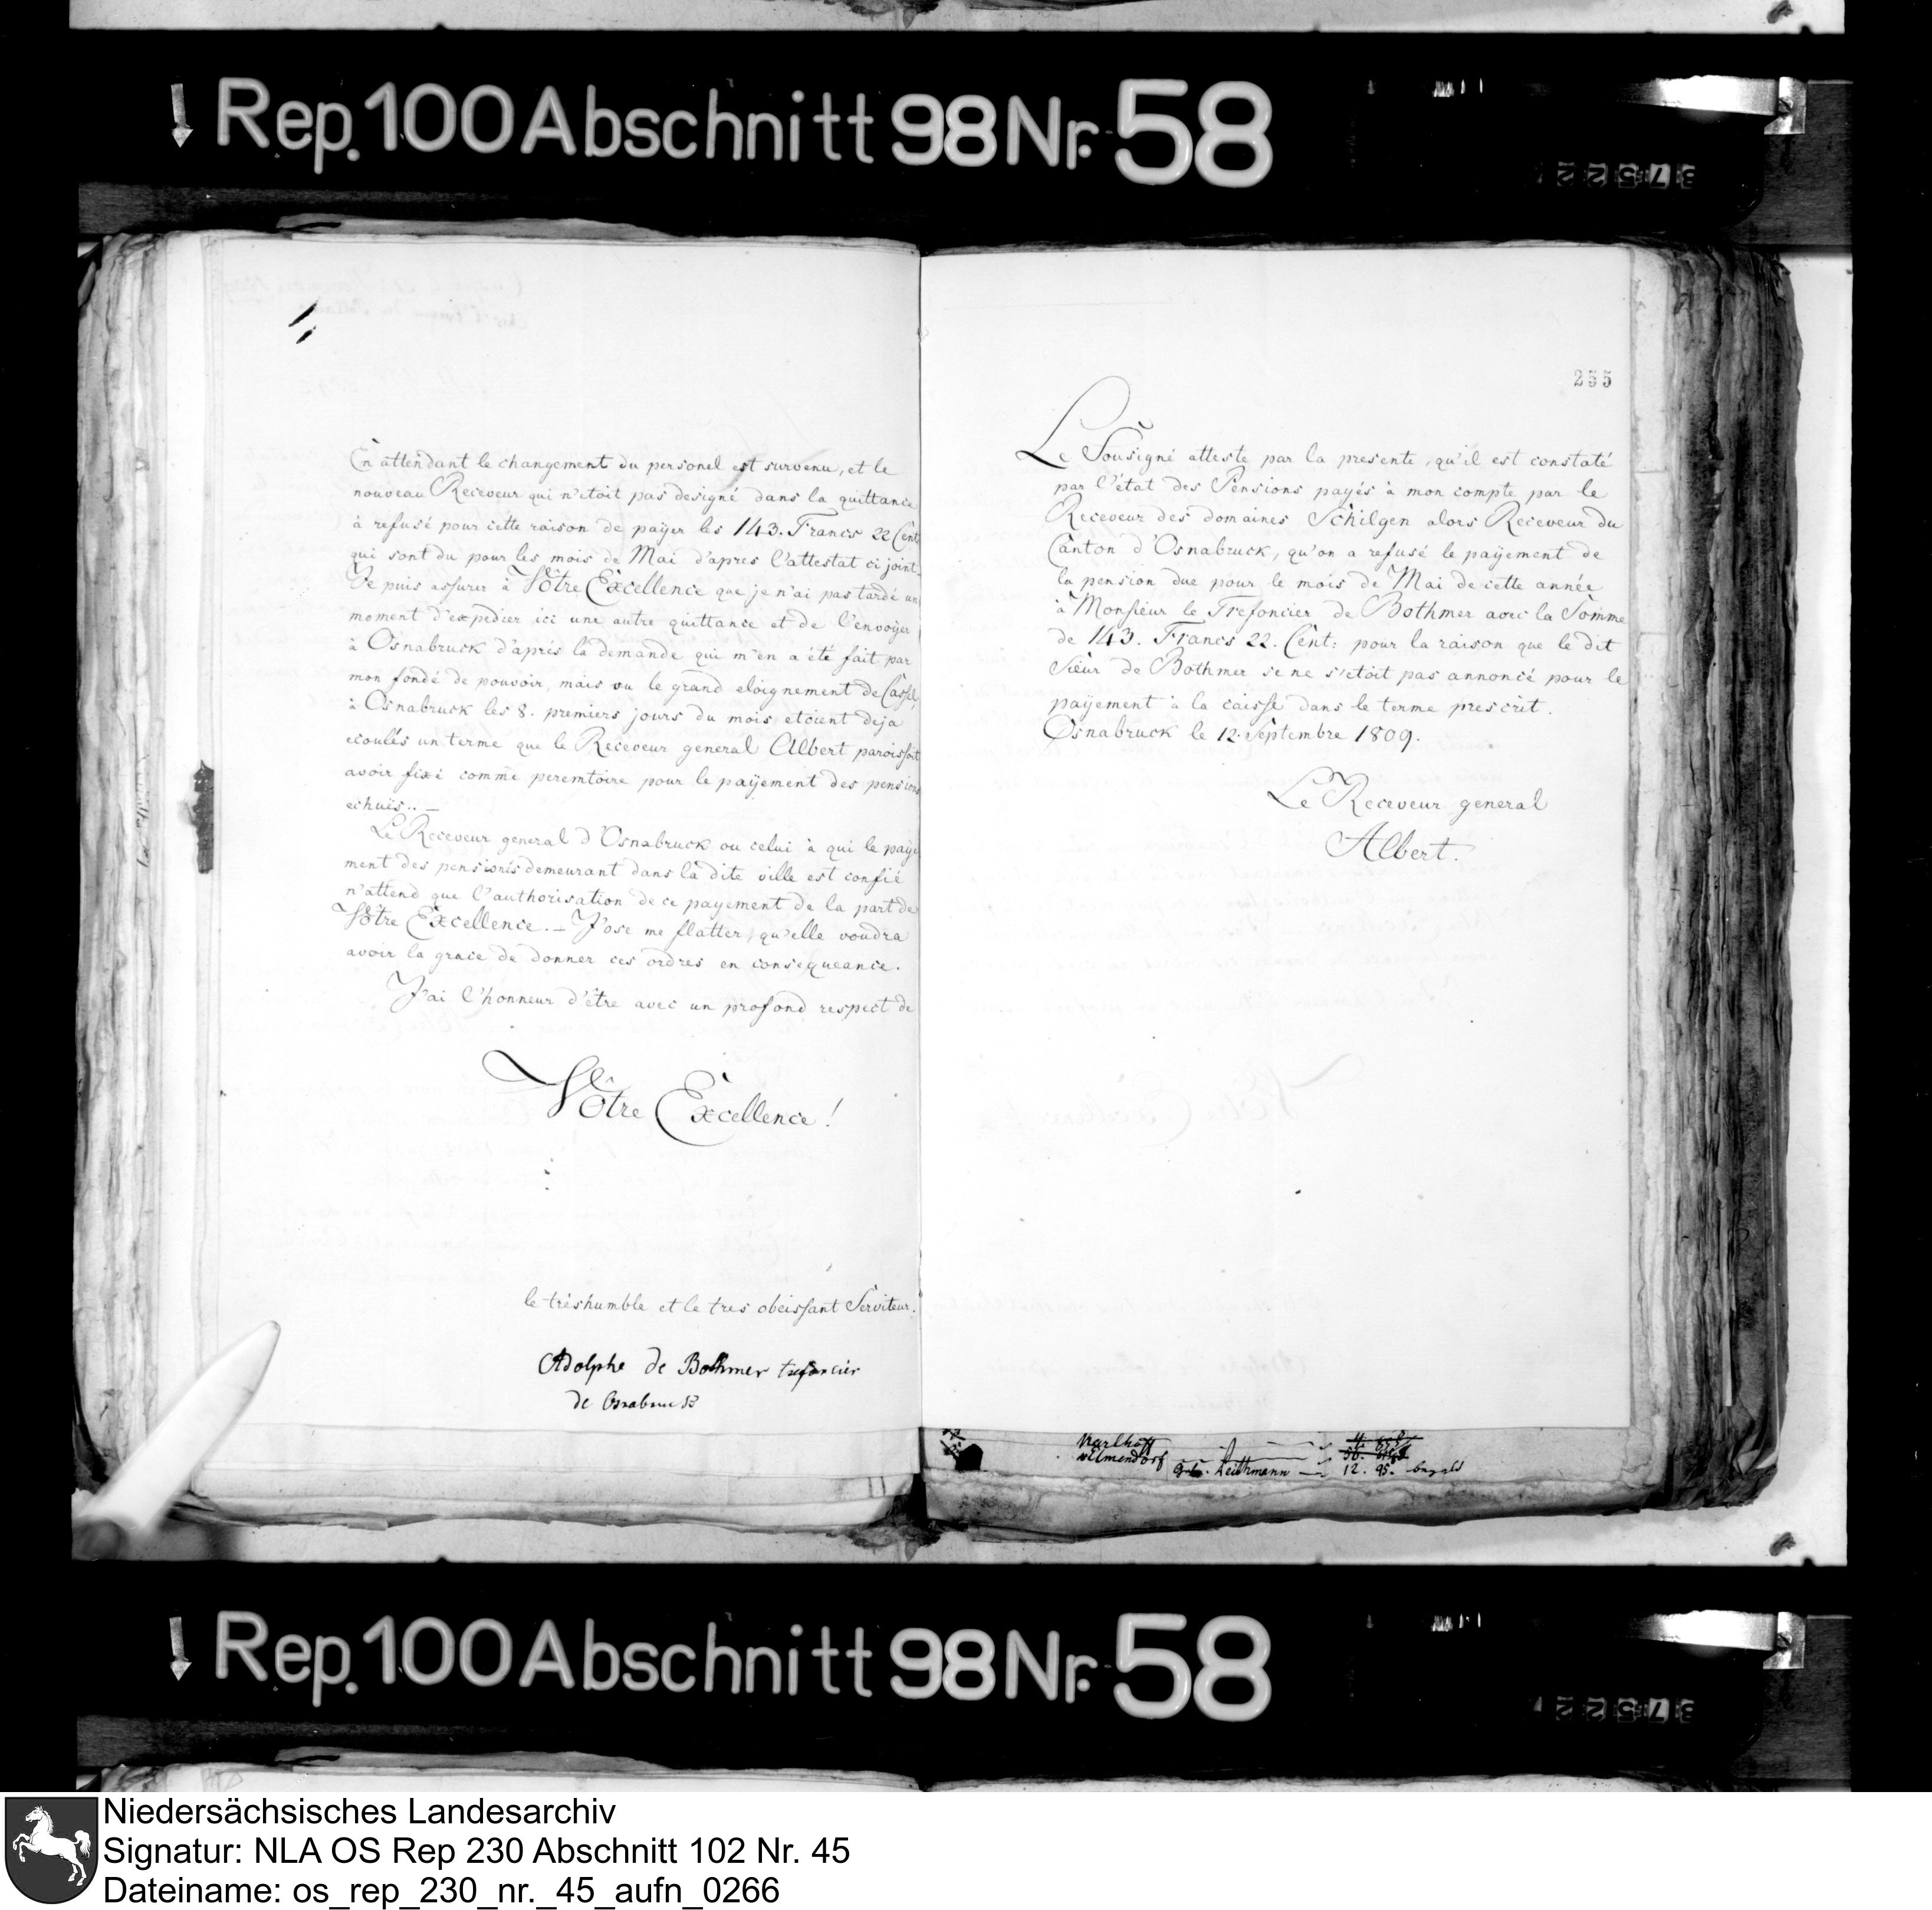 Rep. 100 Abschnitt 98 Nr. 58
En attendant le changement du personel est survenu, et le
nouveau Receveur qui n'etoit pas designé dans la quittance
à refusé pour cette raison de paÿer les 143. Francs 22 Cent
qui sont du pour les mois de Mai d'apres l'attestat ci joint.
Je puis assurer à Vôtre Excellence que je n'ai pas tardé un
moment d'expedier ici une autre quittance et de l'envoÿer
à Osnabruck d'après la demande qui m'en a été fait par
mon fondé de pouvoir, mais vu le grand eloignement de Cassel
à Osnabruck les 8. premiers jours du mois etoient deja
ecoulés un terme que le Receveur general Albert paroissoit
avoir fixé comme peremtoire pour le paÿement des pensions
echues.. —
Le Receveur general d'Osnabruck ou celui à qui le paye
ment des pensionés demeurant dans la dite ville est confié
n'attend que l'authorisation de ce payement de la part de
Vôtre Excellence. — J'ose me flatter, qu'elle voudra
avoir la grace de donner ces ordres en consequeance.
J'ai l'honneur d'être avec un profond respect de
Vôtre Excellence!
le trèshumble et le tres obeissant Serviteur.
Adolphe de Bothmer trefoncier
de Osnabruck
255
Le Sousigné atteste par la presente, qu'il est constaté
par l'état des Pensions payés à mon compte par le
Receveur des domaines Schilgen alors Receveur du
Canton d'Osnabruck, qu'on a refusé le paÿement de
la pension due pour le mois de Mai de cette année
à Monsieur le Trefoncier de Bothmer avec la Somme
de 143. Francs 22. Cent: pour la raison que le dit
Sieur de Bothmer se ne s'etoit pas annoncé pour le
paÿement à la caisse dans le terme prescrit.
Osnabruck le 12. Septembre 1809.
Le Receveur general
Albert.
12. 95.
Rep. 100 Abschnitt 98 Nr. 58
Niedersächsisches Landesarchiv
Signatur: NLA OS Rep 230 Abschnitt 102 Nr. 45
Dateiname: os_rep_230_nr._45_aufn_0266